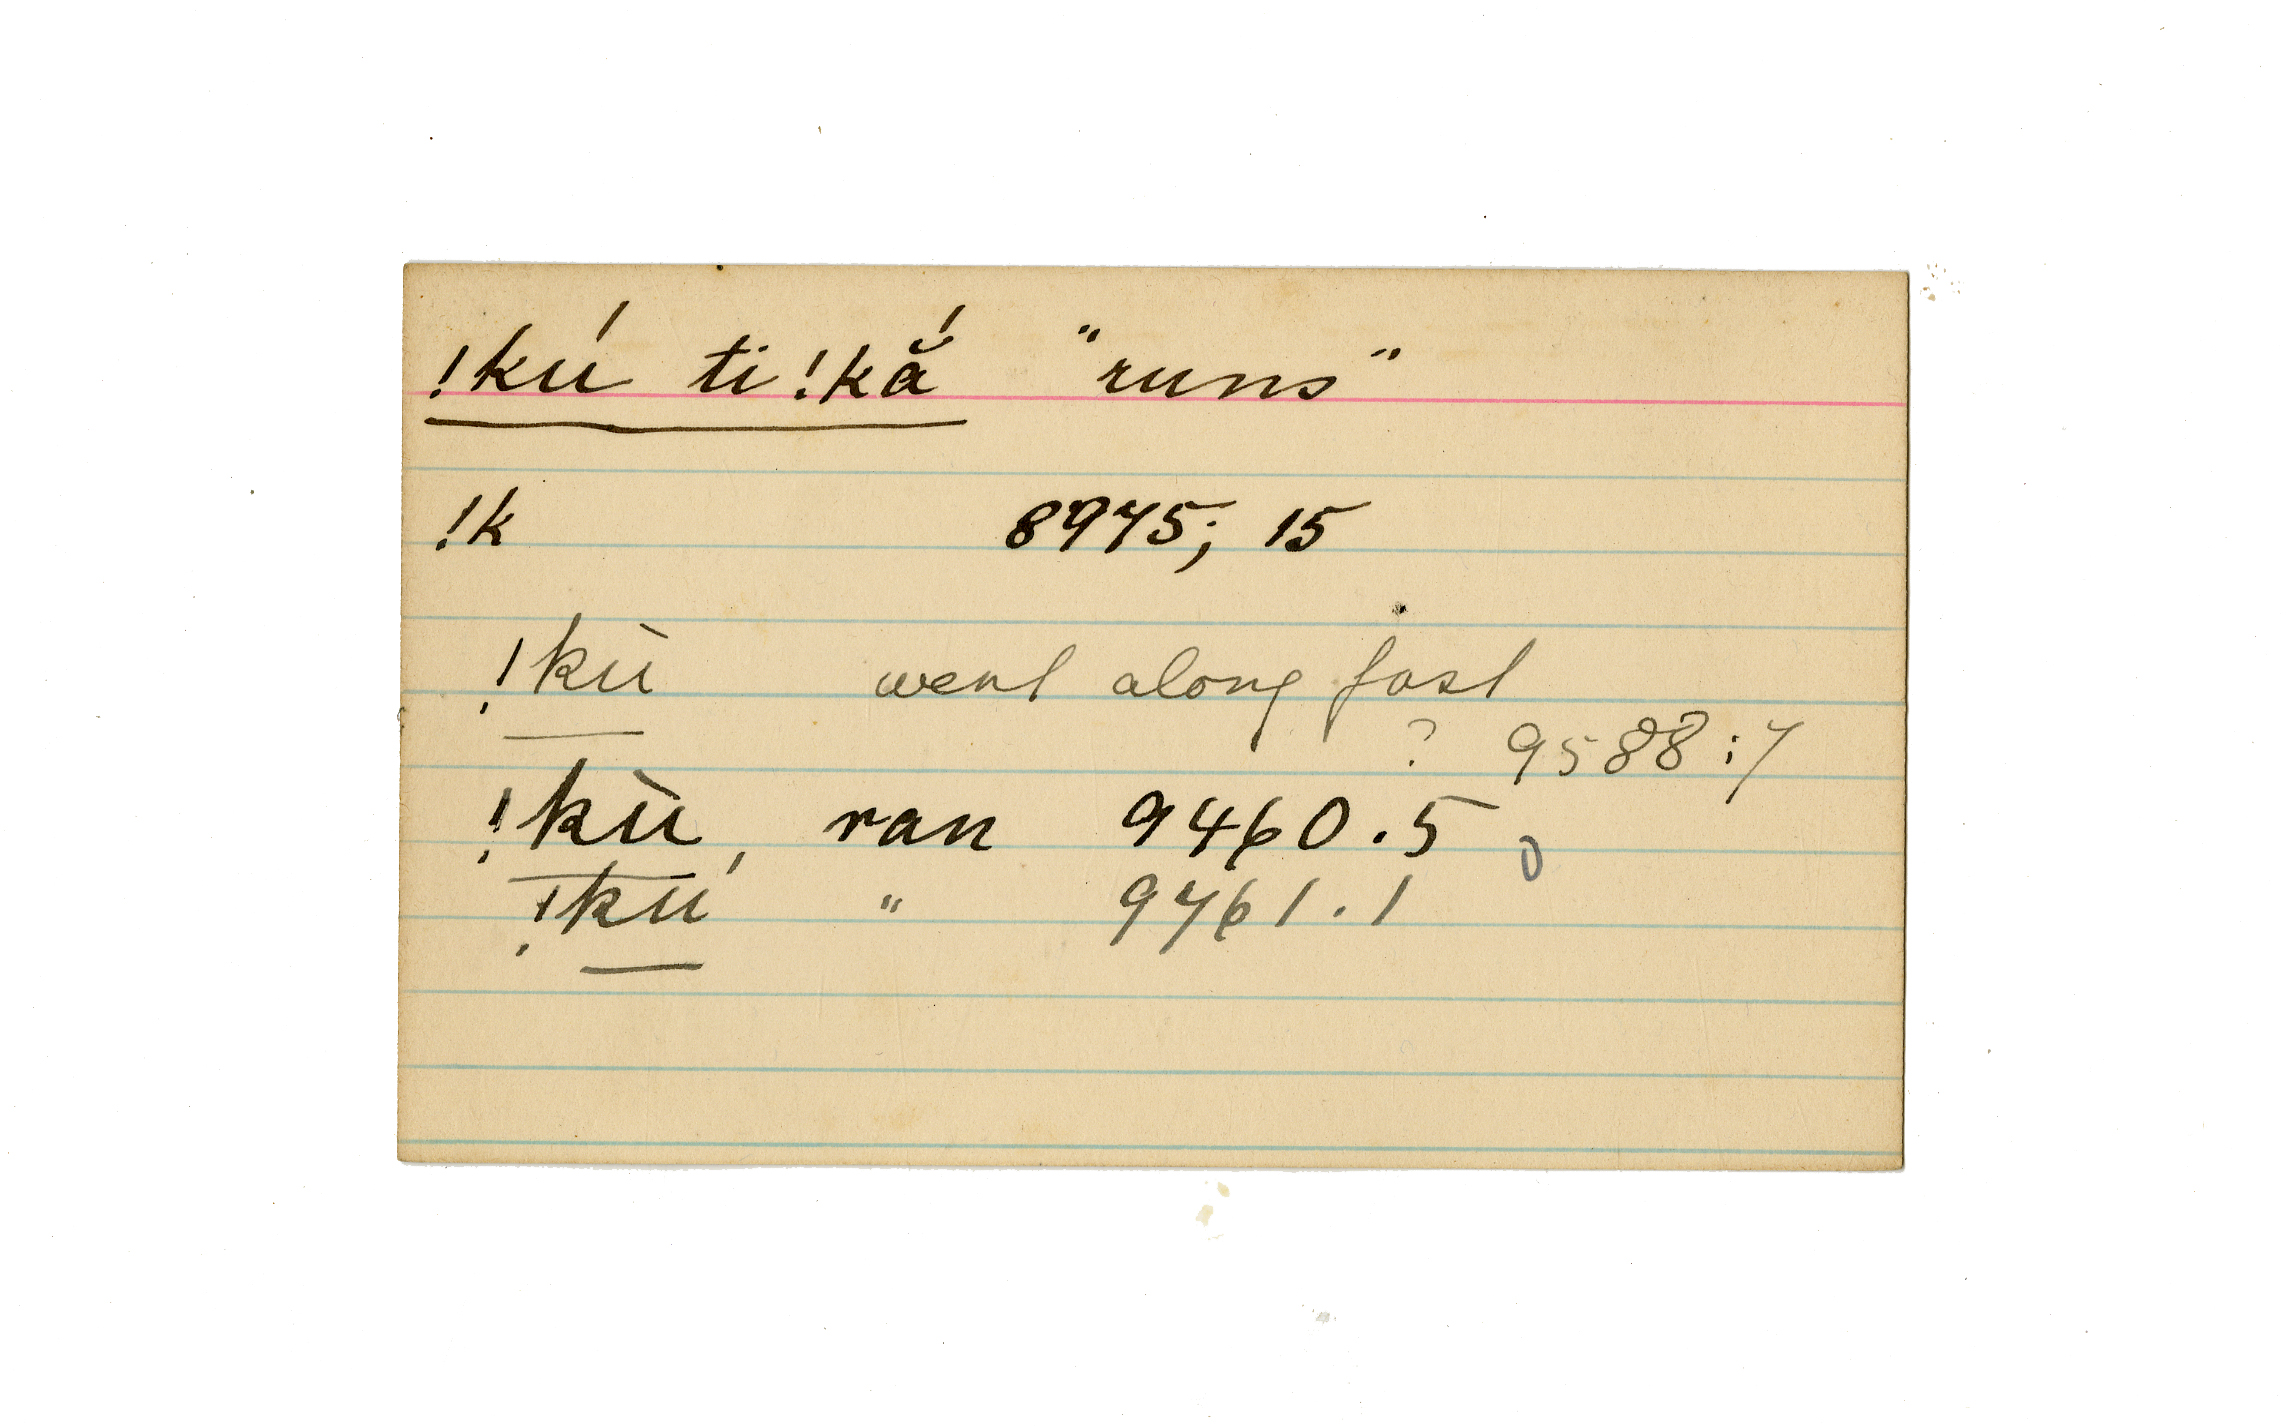 !kú ti !kắ "runs"
!k 8975; 15
!kù went along fast
? 9588:7
!kù, ran 9460.5
!kú " 9461.1